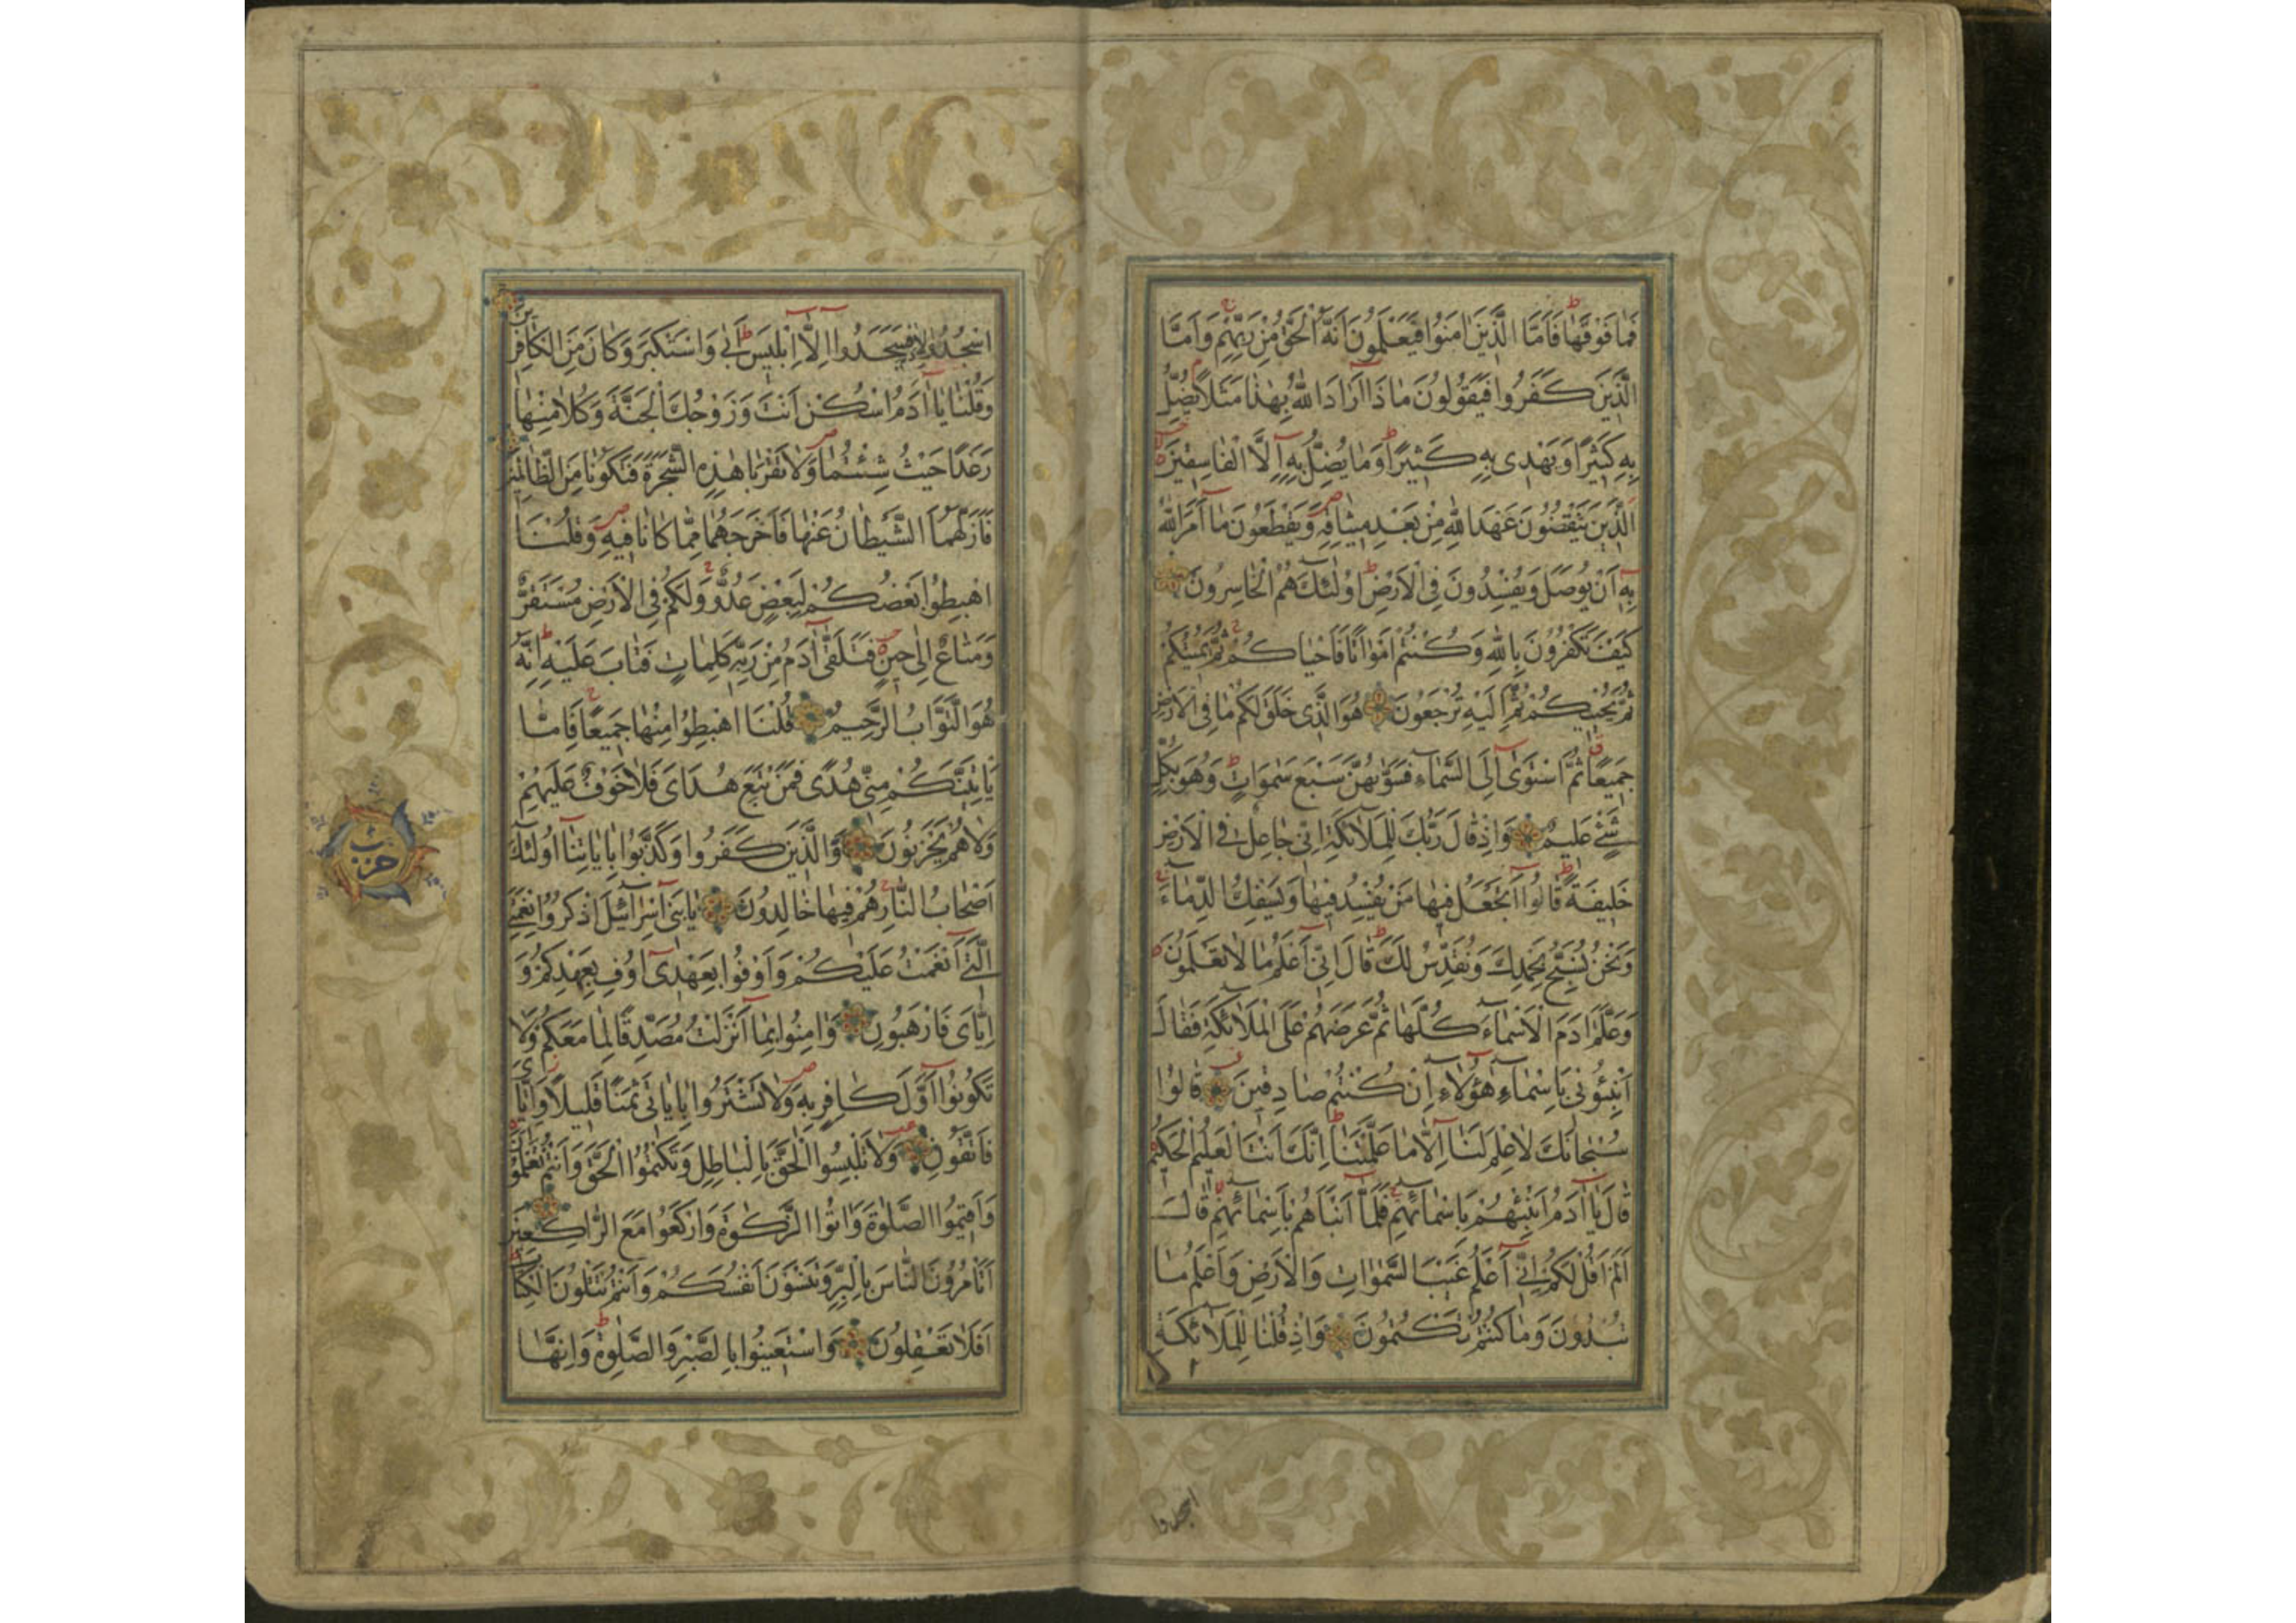 فَمَا فَوْقَهَا فَاَمَّا الَّذِينَ اٰمَنُوا فَيَعْلَمُونَ اَنَّهُ الْحَقُّ مِنْ رَبِّهِمْ وَاَمَّا
الَّذِينَ كَفَرُوا فَيَقُولُونَ مَاذَا اَرَادَ اللّٰهُ بِهٰذَا مَثَلًا يُضِلُّ
بِهِ كَثِيرًا وَيَهْدِى بِهِ كَثِيرًا وَمَا يُضِلُّ بِهِ اِلَّا الْفَاسِقِينَ
الَّذِينَ يَنْقُضُونَ عَهْدَ اللّٰهِ مِنْ بَعْدِ مِيثَاقِهِ وَيَقْطَعُونَ مَا اَمَرَ اللّٰهُ
بِهِ اَنْ يُوصَلَ وَيُفْسِدُونَ فِى الْاَرْضِ اُولٰئِكَ هُمُ الْخَاسِرُونَ
كَيْفَ تَكْفُرُونَ بِاللّٰهِ وَكُنْتُمْ اَمْوَاتًا فَاَحْيَاكُمْ ثُمَّ يُمِيتُكُمْ
ثُمَّ يُحْيِيكُمْ ثُمَّ اِلَيْهِ تُرْجَعُونَ هُوَ الَّذِى خَلَقَ لَكُمْ مَا فِى الْاَرْضِ
جَمِيعًا ثُمَّ اسْتَوٰى اِلَى السَّمَاءِ فَسَوّٰيهُنَّ سَبْعَ سَمٰوَاتٍ وَهُوَ بِكُلِّ
شَىْءٍ عَلِيمٌ وَاِذْ قَالَ رَبُّكَ لِلْمَلَائِكَةِ اِنِّى جَاعِلٌ فِى الْاَرْضِ
خَلِيفَةً قَالُوا اَتَجْعَلُ فِيهَا مَنْ يُفْسِدُ فِيهَا وَيَسْفِكُ الدِّمَاءَ
وَنَحْنُ نُسَبِّحُ بِحَمْدِكَ وَنُقَدِّسُ لَكَ قَالَ اِنِّى اَعْلَمُ مَا لَا تَعْلَمُونَ
وَعَلَّمَ اٰدَمَ الْاَسْمَاءَ كُلَّهَا ثُمَّ عَرَضَهُمْ عَلَى الْمَلَائِكَةِ فَقَالَ
اَنْبِئُونِى بِاَسْمَاءِ هٰؤُلَاءِ اِنْ كُنْتُمْ صَادِقِينَ قَالُوا
سُبْحَانَكَ لَا عِلْمَ لَنَا اِلَّا مَا عَلَّمْتَنَا اِنَّكَ اَنْتَ الْعَلِيمُ الْحَكِيمُ
قَالَ يَا اٰدَمُ اَنْبِئْهُمْ بِاَسْمَائِهِمْ فَلَمَّا اَنْبَاَهُمْ بِاَسْمَائِهِمْ قَالَ
اَلَمْ اَقُلْ لَكُمْ اِنِّى اَعْلَمُ غَيْبَ السَّمٰوَاتِ وَالْاَرْضِ وَاَعْلَمُ مَا
تُبْدُونَ وَمَا كُنْتُمْ تَكْتُمُونَ وَاِذْ قُلْنَا لِلْمَلَائِكَةِ
اسجدوا
اسْجُدُوا لِاٰدَمَ فَسَجَدُوا اِلَّا اِبْلِيسَ اَبٰى وَاسْتَكْبَرَ وَكَانَ مِنَ الْكَافِرِينَ
وَقُلْنَا يَا اٰدَمُ اسْكُنْ اَنْتَ وَزَوْجُكَ الْجَنَّةَ وَكُلَا مِنْهَا
رَغَدًا حَيْثُ شِئْتُمَا وَلَا تَقْرَبَا هٰذِهِ الشَّجَرَةَ فَتَكُونَا مِنَ الظَّالِمِينَ
فَاَزَلَّهُمَا الشَّيْطَانُ عَنْهَا فَاَخْرَجَهُمَا مِمَّا كَانَا فِيهِ وَقُلْنَا
اهْبِطُوا بَعْضُكُمْ لِبَعْضٍ عَدُوٌّ وَلَكُمْ فِى الْاَرْضِ مُسْتَقَرٌّ
وَمَتَاعٌ اِلٰى حِينٍ فَتَلَقّٰى اٰدَمُ مِنْ رَبِّهِ كَلِمَاتٍ فَتَابَ عَلَيْهِ اِنَّهُ
هُوَ التَّوَّابُ الرَّحِيمُ قُلْنَا اهْبِطُوا مِنْهَا جَمِيعًا فَاِمَّا
يَاْتِيَنَّكُمْ مِنِّى هُدًى فَمَنْ تَبِعَ هُدَاىَ فَلَا خَوْفٌ عَلَيْهِمْ
وَلَا هُمْ يَحْزَنُونَ وَالَّذِينَ كَفَرُوا وَكَذَّبُوا بِاٰيَاتِنَا اُولٰئِكَ
اَصْحَابُ النَّارِ هُمْ فِيهَا خَالِدُونَ يَا بَنِى اِسْرَائِيلَ اذْكُرُوا نِعْمَتِىَ
الَّتِى اَنْعَمْتُ عَلَيْكُمْ وَاَوْفُوا بِعَهْدِى اُوفِ بِعَهْدِكُمْ وَ
اِيَّاىَ فَارْهَبُونِ وَاٰمِنُوا بِمَا اَنْزَلْتُ مُصَدِّقًا لِمَا مَعَكُمْ وَلَا
تَكُونُوا اَوَّلَ كَافِرٍ بِهِ وَلَا تَشْتَرُوا بِاٰيَاتِى ثَمَنًا قَلِيلًا وَاِيَّاىَ
فَاتَّقُونِ وَلَا تَلْبِسُوا الْحَقَّ بِالْبَاطِلِ وَتَكْتُمُوا الْحَقَّ وَاَنْتُمْ تَعْلَمُونَ
وَاَقِيمُوا الصَّلٰوةَ وَاٰتُوا الزَّكٰوةَ وَارْكَعُوا مَعَ الرَّاكِعِينَ
اَتَاْمُرُونَ النَّاسَ بِالْبِرِّ وَتَنْسَوْنَ اَنْفُسَكُمْ وَاَنْتُمْ تَتْلُونَ الْكِتَابَ
اَفَلَا تَعْقِلُونَ وَاسْتَعِينُوا بِالصَّبْرِ وَالصَّلٰوةِ وَاِنَّهَا
حزب